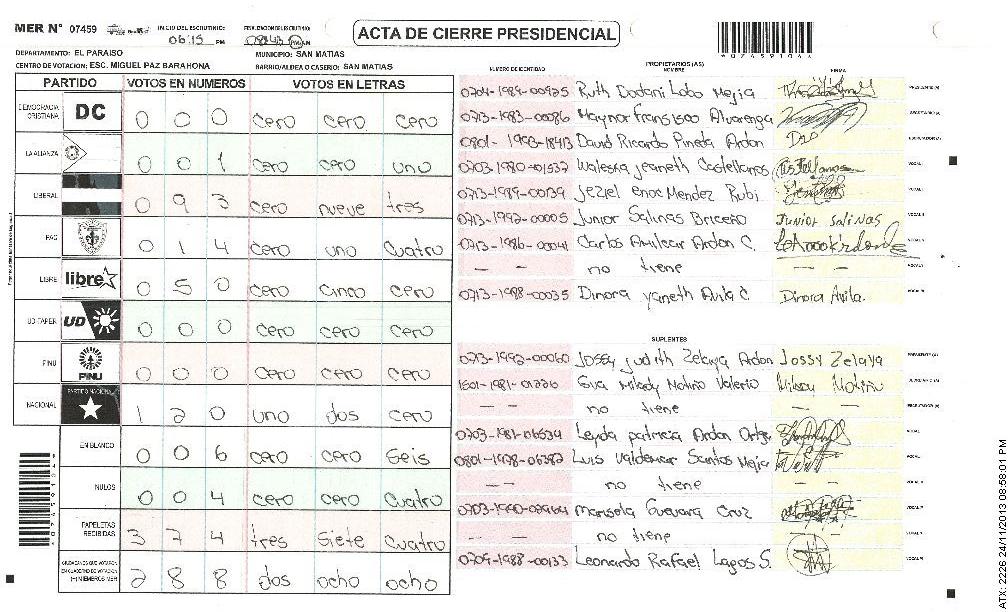 MER N° 07459
INICIO DEL ESCRUTINIO:
06:15 PM
ACTA DE CIERRE PRESIDENCIAL
DEPARTAMENTO: EL PARAISO
MUNICIPIO: SAN MATIAS
CENTRO DE VOTACION: ESC. MIGUEL PAZ BARAHONA
BARRIO/ALDEA O CASERIO: SAN MATIAS
PARTIDO VOTOS EN NUMEROS VOTOS EN LETRAS
DEMOCRACIA CRISTIANA DC 0 0 0 cero cero cero
LA ALIANZA 0 0 1 cero cero uno
LIBERAL 0 9 3 cero nueve tres
PAC 0 1 4 cero uno cuatro
LIBRE libre 0 5 0 cero cinco cero
UD-FAPER UD 0 0 0 cero cero cero
PINU PINU 0 0 0 cero cero cero
NACIONAL PARTIDO NACIONAL 1 2 0 uno dos cero
EN BLANCO 0 0 6 cero cero seis
NULOS 0 0 4 cero cero cuatro
PAPELETAS RECIBIDAS 3 7 4 tres siete cuatro
CIUDADANOS QUE VOTARON EN CUADERNO DE VOTACION (+) MIEMBROS MER 2 8 8 dos ocho ocho
PROPIETARIOS (AS)
NUMERO DE IDENTIDAD NOMBRE FIRMA
0704-1984-00925 Ruth Dadani Lobo Mejia
0713-1983-00086 Maynor Fransisco Alvarenga
0801-1993-18413 David Ricardo Pineda Ardon
0703-1980-01537 Waleska Jeaneth Castellanos
0713-1989-00139 Jeziel Enoc Mendez Rubi
0713-1992-00005 Junior Salinas Briceño Junior Salinas
0713-1986-00041 Carlos Amilcar Ardon C.
— — no tiene — —
0713-1988-00035 Dinora yaneth Avila C. Dinora Avila.
SUPLENTES
0713-1992-00060 Jossy Judith Zelaya Ardon Jossy Zelaya
1501-1981-01226 Eva Milady Motiño Valerio Milady Motiño
— — no tiene — —
0703-1981-06534 Leyda patricia Ardon Ortiz
0801-1978-06387 Luis Valdemar Santos Mejia
— — no tiene — —
0703-1990-02964 Marisela Guevara Cruz
— — no tiene
0704-1988-00133 Leonardo Rafael Lagos S.
ATX: 2226 24/11/2013 08:58:01 PM